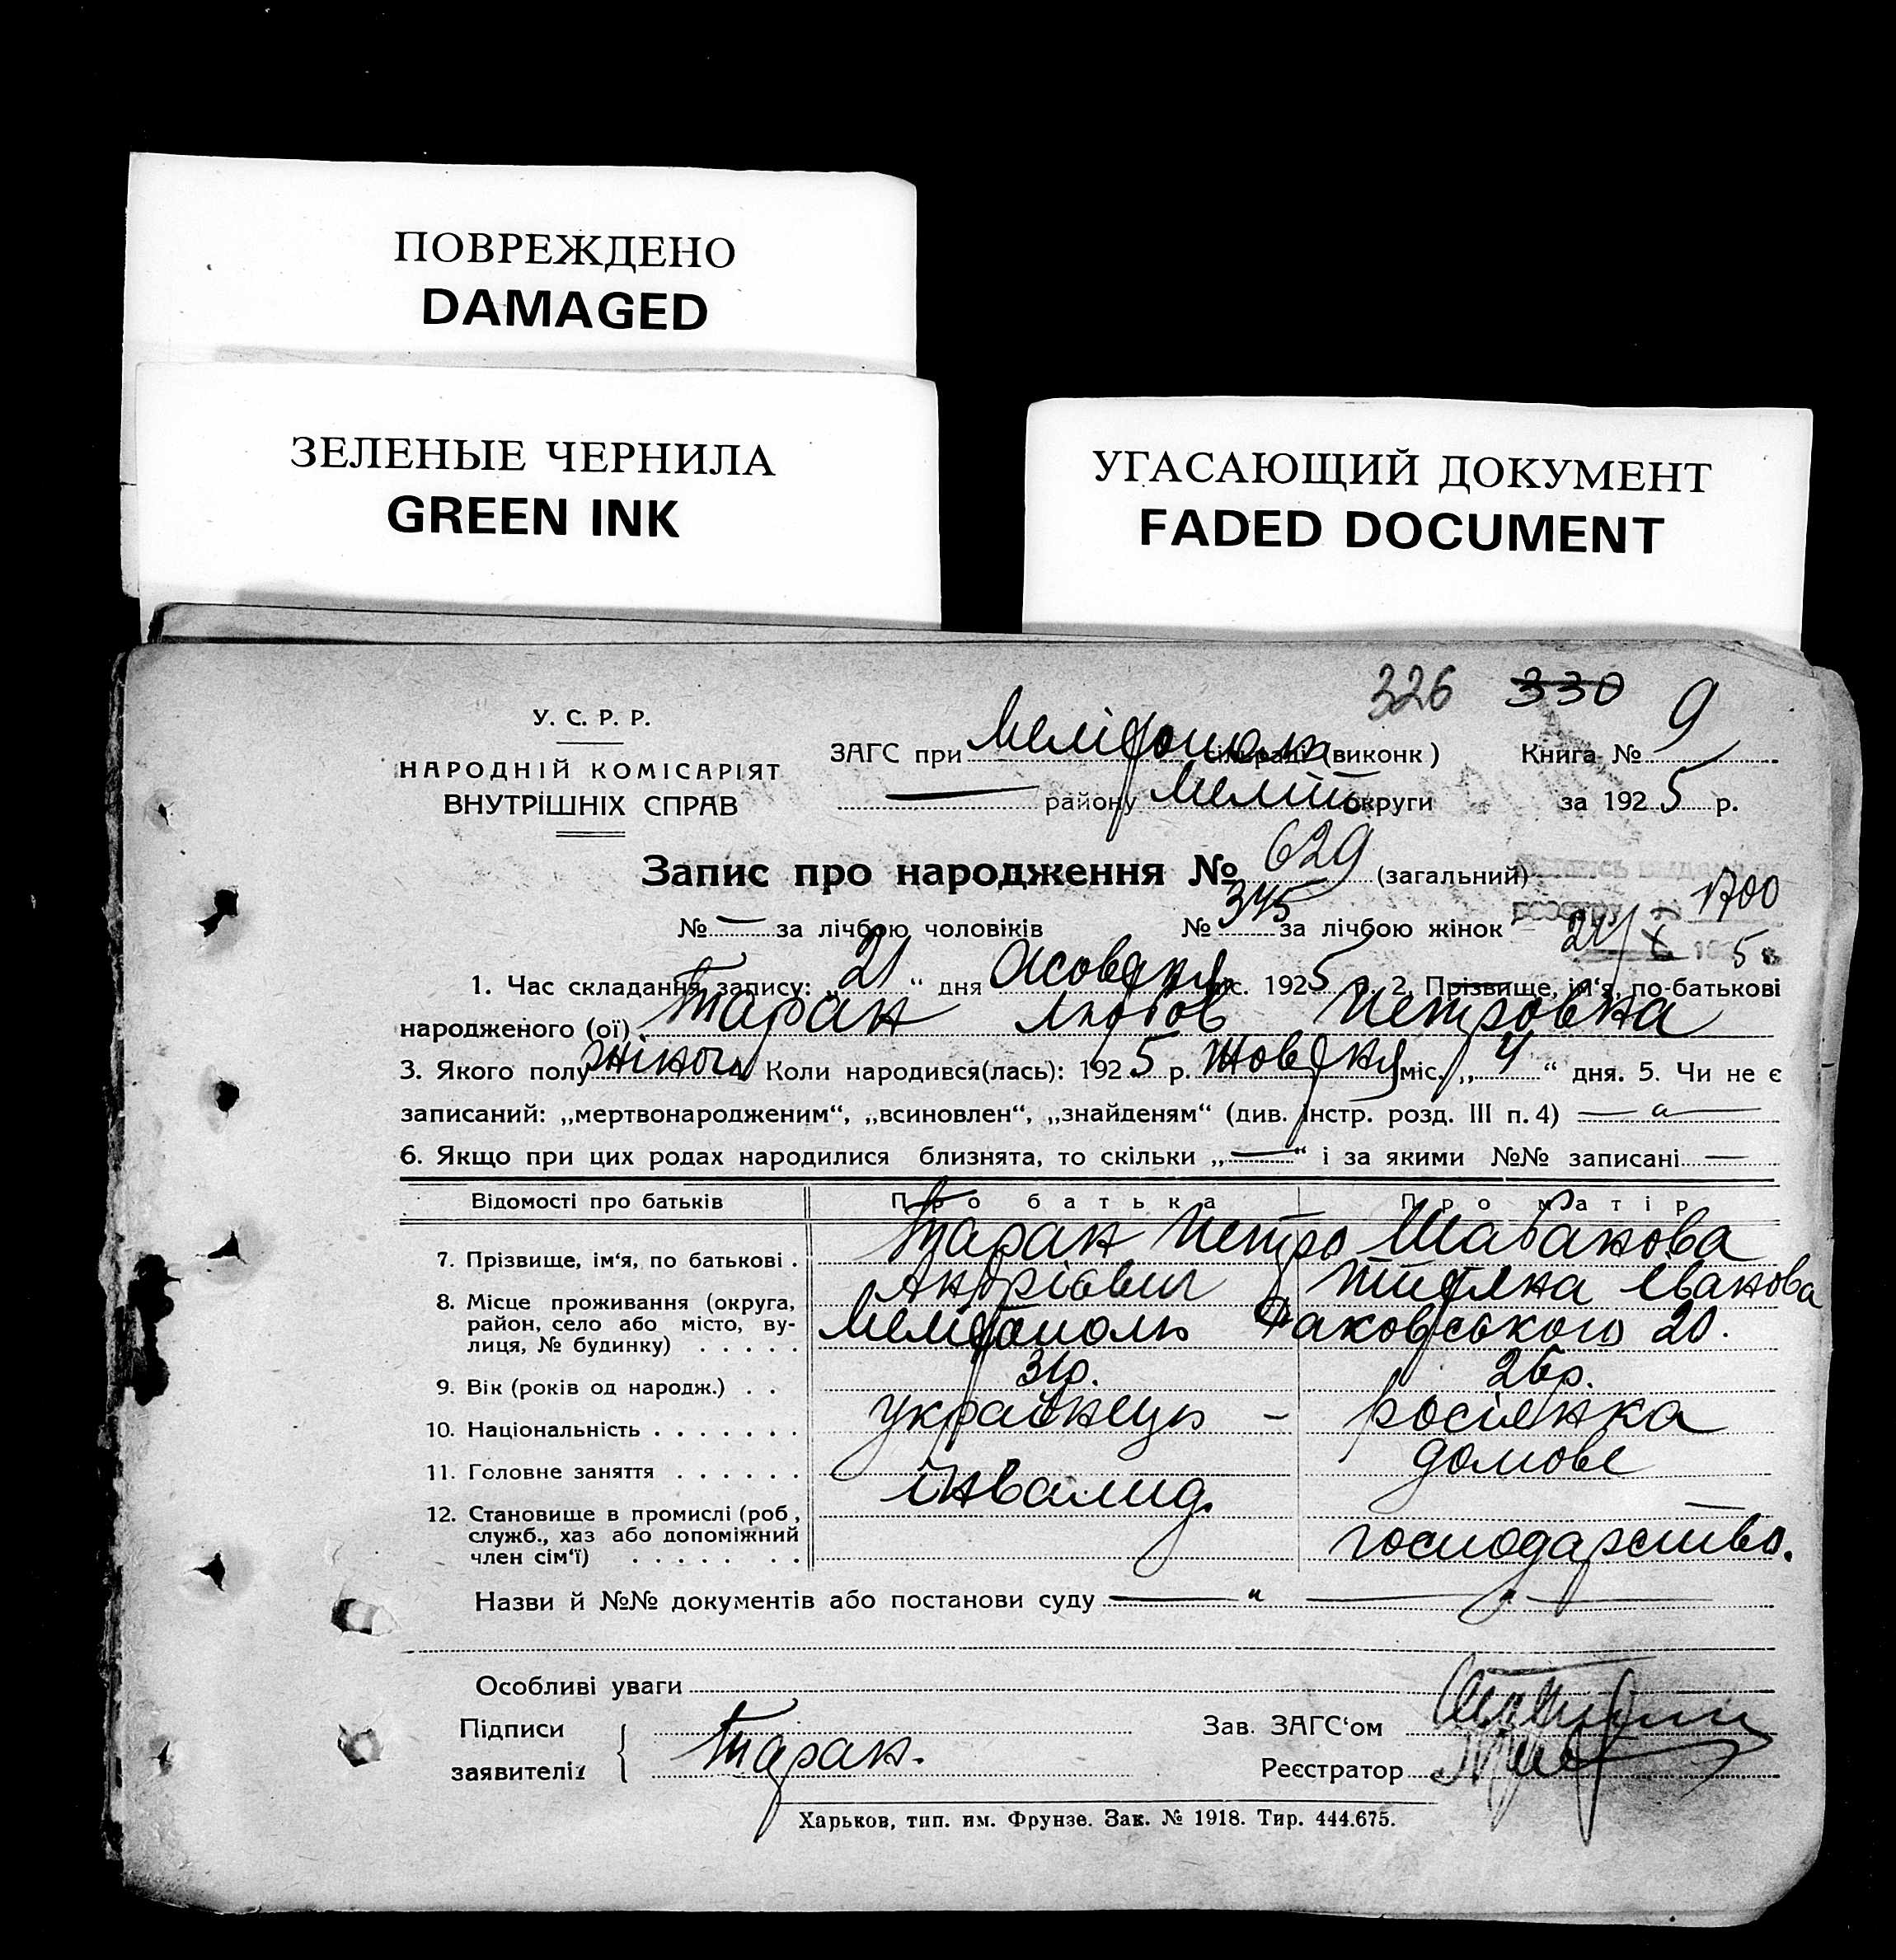 ПОВРЕЖДЕНО
DAMAGED
ЗЕЛЕНЫЕ ЧЕРНИЛА
GREEN INK
УГАСАЮЩИЙ ДОКУМЕНТ
FADED DOCUMENT
326 330
У. С. Р. Р.
НАРОДНІЙ КОМІСАРІЯТ
ВНУТРІШНІХ СПРАВ
ЗАГС при сільраді (виконк) Книга № 9
— району Меліт округи за 1925 р.
Запис про народження № 629 (загальний)
№ — за лічбою чоловіків № 345 за лічбою жінок
1700
1. Час складання запису: „21“ дня міс. 1925 р. 2. Прізвище, ім‘я, по-батькові
народженого (ої) Таран Любов Петровна
3. Якого полу жіночи 4. Коли народився(лась): 1925 р. Жовтня міс. „4“ дня. 5. Чи не є
записаний: „мертвонародженим“, „всиновлен“, „знайденям“ (див. Інстр. розд. III п. 4)
6. Якщо при цих родах народилися близнята, то скільки „—“ і за якими №№ записані —
Відомості про батьків Про батька Про матір
7. Прізвище, ім‘я, по батькові . Таран Петро Андрієвич Шабанова Івановa
8. Місце проживання (округа, район, село або місто, вулиця, № будинку) . . . . . Мелітополь Раковського 20.
9. Вік (років од народж.) . . 31р. 26р.
10. Національність . . . . . . . українець – росіянка
11. Головне заняття . . . . . . інвалид домове
12. Становище в промислі (роб, служб., хаз або допоміжний член сім‘ї) . . . . . . . господарство.
Назви й №№ документів або постанови суду — “ —
Особливі уваги
Підписи заявителів { Таран.
Зав. ЗАГС‘ом
Реєстратор
Харьков, тип. им. Фрунзе. Зак. № 1918. Тир. 444.675.